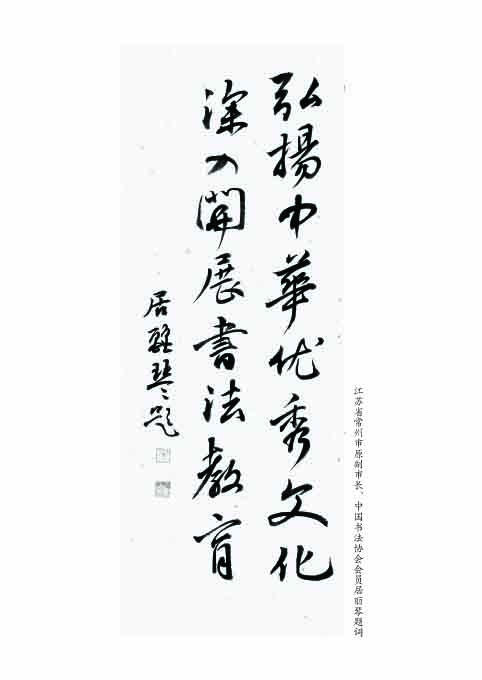 弘揚中華优秀文化
深入開展書法教育
居麗琴題
江苏省常州市原副市长、中国书法协会会员居丽琴题词